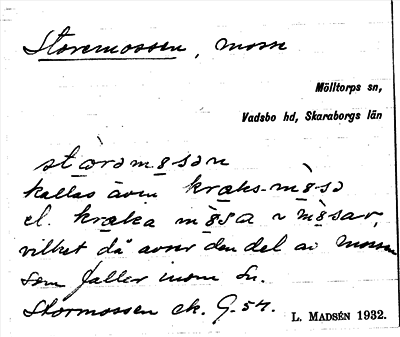 Storemossen, mosse
Mölltorps sn,
Vadsbo hd, Skaraborgs län
störamosan
kallas även kræks-mòsa
el. kræka mòsa ~ mòsar,
vilket då avser den del av mossen
som faller inom sn.
Stormossen ek. G. 54.
L. MADSÉN 1932.